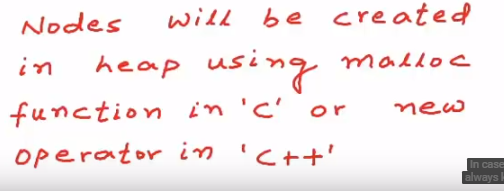 Nodes will be created
in heap using malloc
function in 'C' or new
operator in 'C++'
In case
always